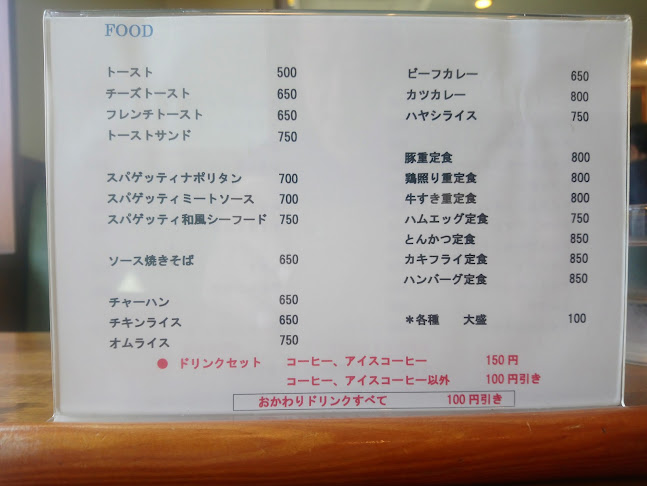 FOOD
トースト 500
チーズトースト 650
フレンチトースト 650
トーストサンド 750
スパゲッティナポリタン 700
スパゲッティミートソース 700
スパゲッティ和風シーフード 750
ソース焼きそば 650
チャーハン 650
チキンライス 650
オムライス 750
ビーフカレー 650
カツカレー 800
ハヤシライス 750
豚重定食 800
鶏照り重定食 800
牛すき重定食 800
ハムエッグ定食 750
とんかつ定食 850
カキフライ定食 850
ハンバーグ定食 850
*各種 大盛 100
● ドリンクセット コーヒー、アイスコーヒー 150円
コーヒー、アイスコーヒー以外 100円引き
おかわりドリンクすべて 100円引き